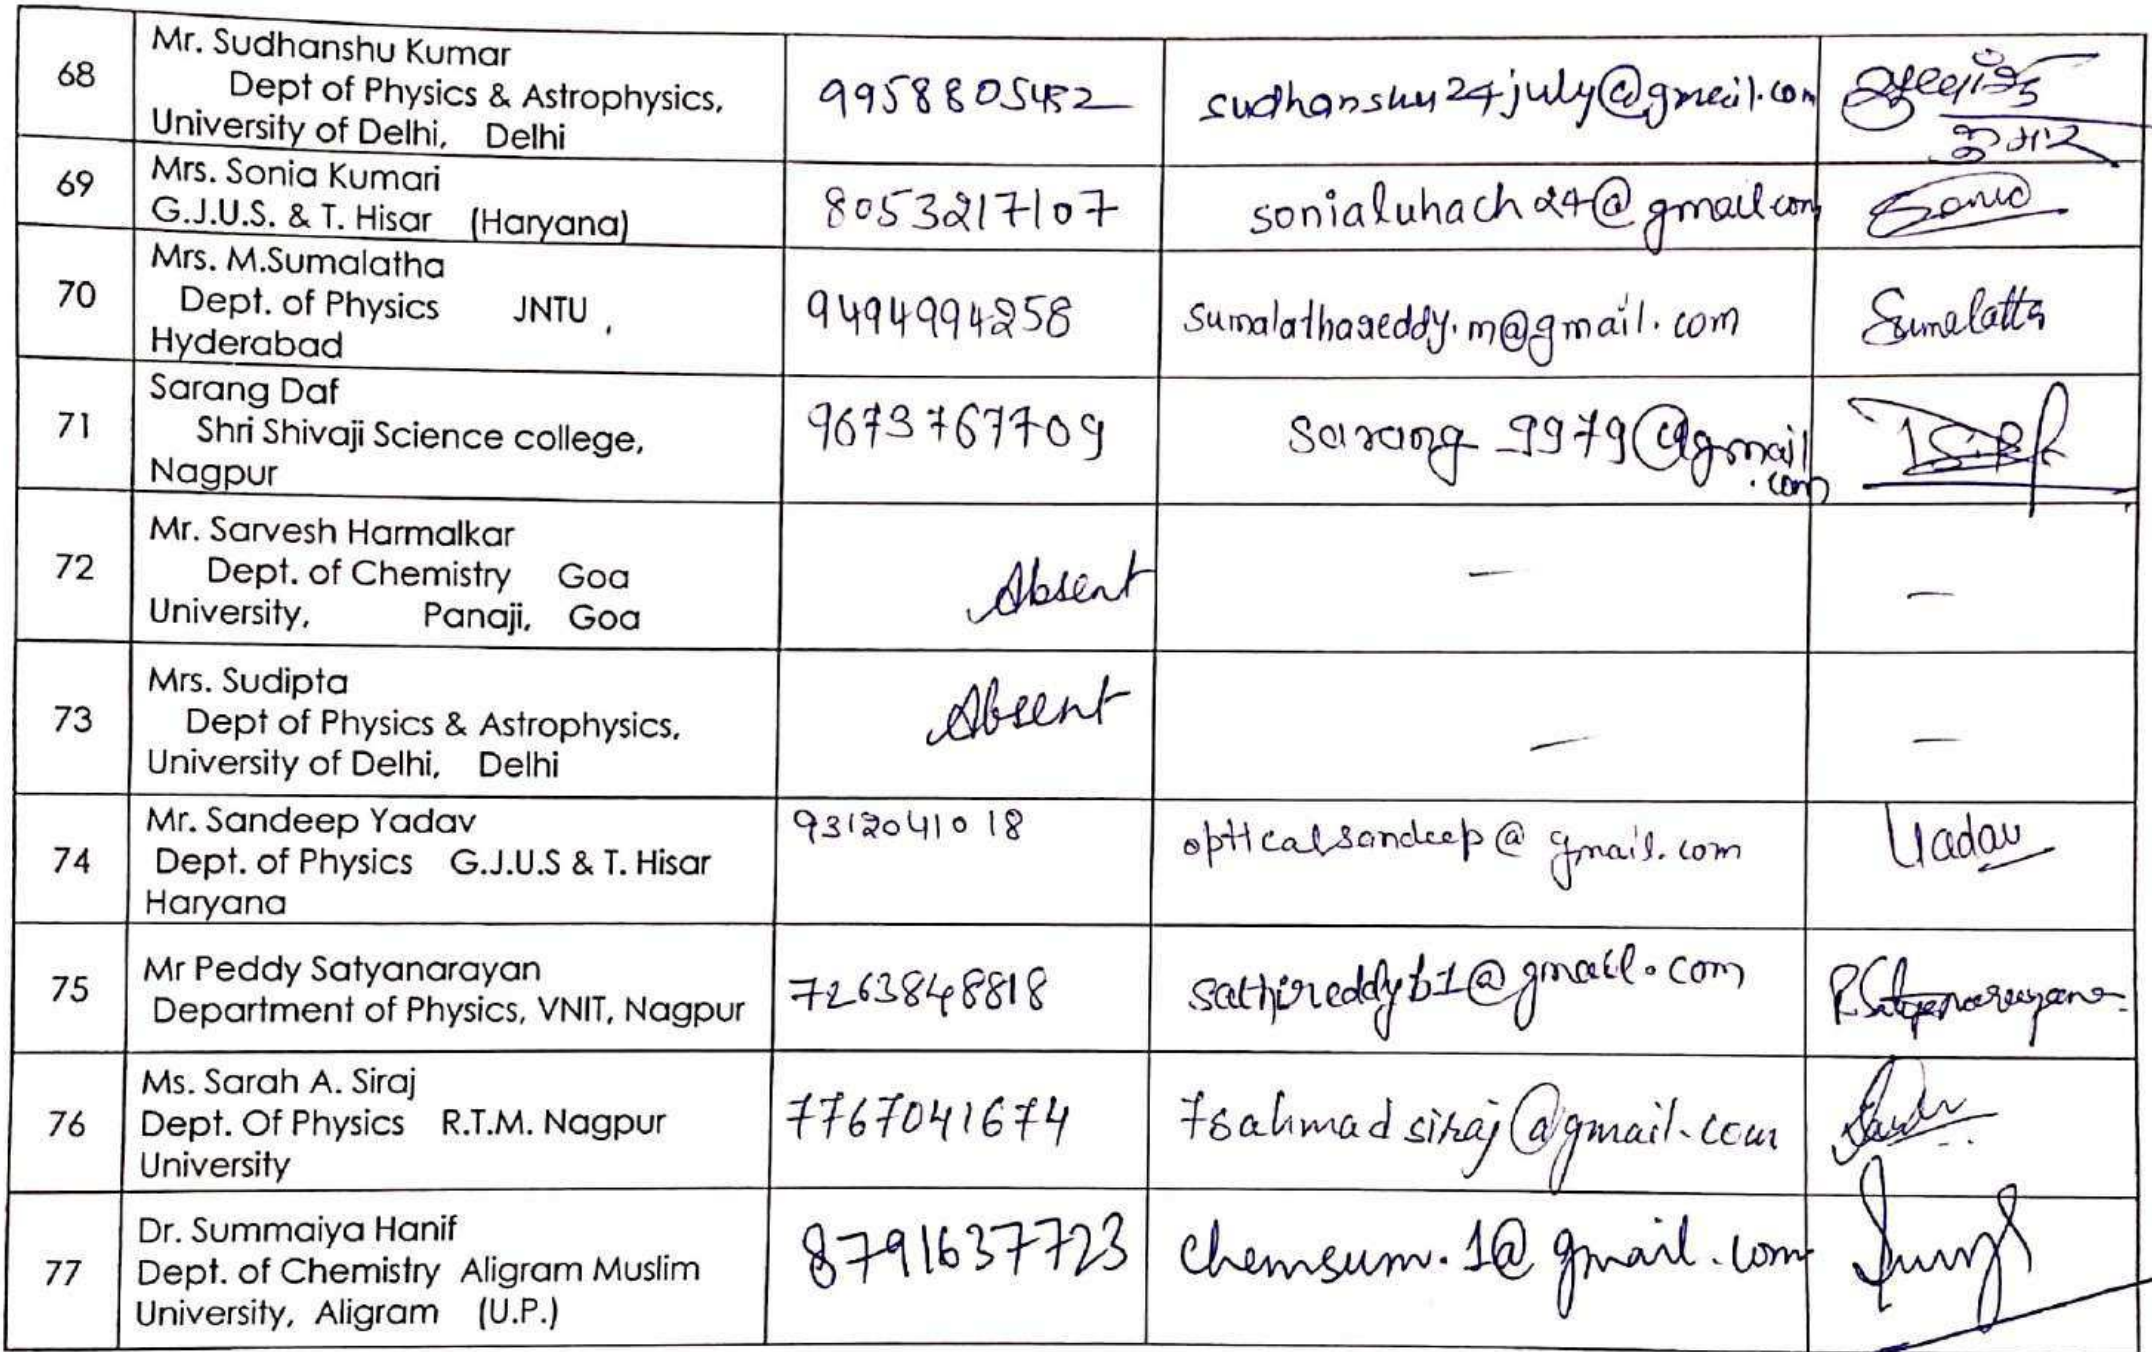 68
Mr. Sudhanshu Kumar
Dept of Physics & Astrophysics,
University of Delhi, Delhi
9958805452
sudhanshu24july@gmail.com
सुधांशु
कुमार
69
Mrs. Sonia Kumari
G.J.U.S. & T. Hisar (Haryana)
8053217107
sonialuhach24@gmail.com
Sonia
70
Mrs. M.Sumalatha
Dept. of Physics JNTU ,
Hyderabad
9494994258
sumalathareddy.m@gmail.com
Sumalatha
71
Sarang Daf
Shri Shivaji Science college,
Nagpur
9673767709
sarang9979@gmail
.com
72
Mr. Sarvesh Harmalkar
Dept. of Chemistry Goa
University, Panaji, Goa
Absent
—
—
73
Mrs. Sudipta
Dept of Physics & Astrophysics,
University of Delhi, Delhi
Absent
—
—
74
Mr. Sandeep Yadav
Dept. of Physics G.J.U.S & T. Hisar
Haryana
9312041018
opticalsandeep@gmail.com
Yadav
75
Mr Peddy Satyanarayan
Department of Physics, VNIT, Nagpur
7263848818
P. Satyanarayana
76
Ms. Sarah A. Siraj
Dept. Of Physics R.T.M. Nagpur
University
7767041674
7sahmadsiraj@gmail.com
77
Dr. Summaiya Hanif
Dept. of Chemistry Aligram Muslim
University, Aligram (U.P.)
8791637723
chemsum.1@gmail.com